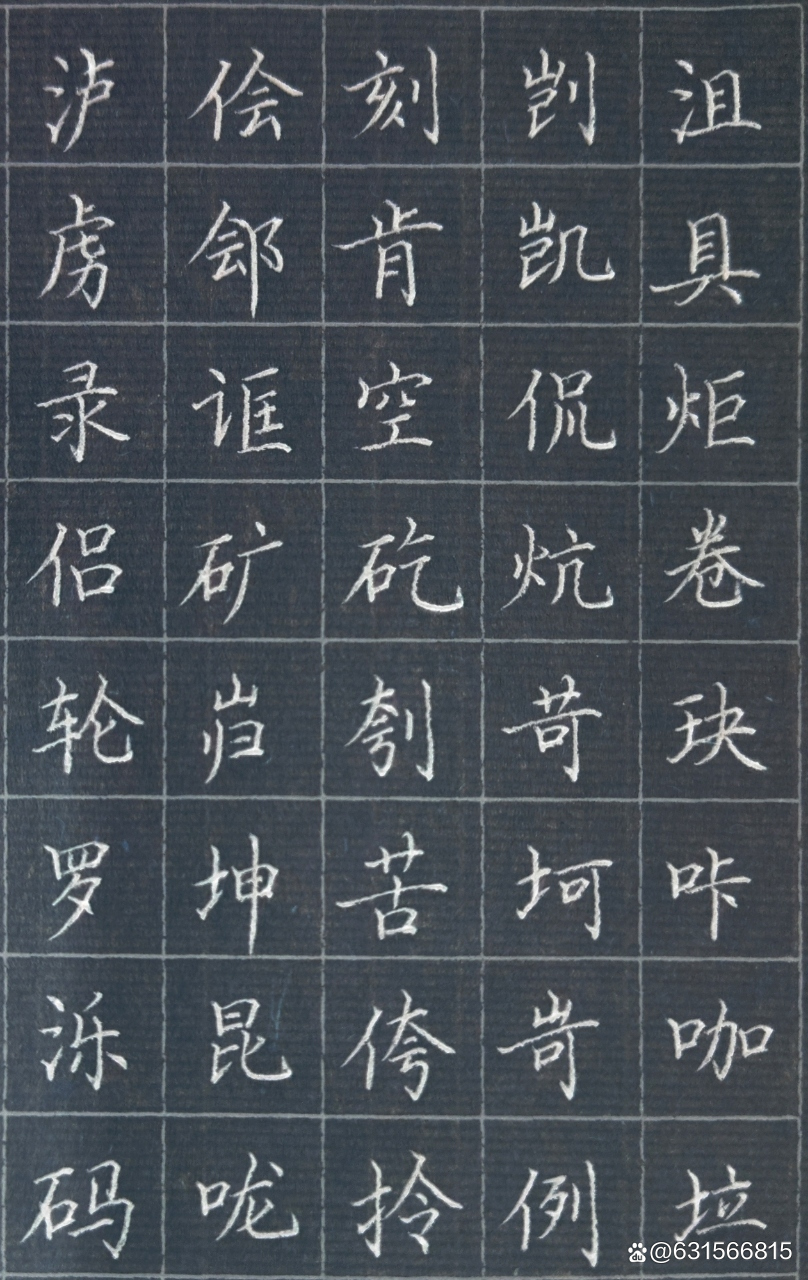 沮具炬卷玦咔咖垃
剀凯侃炕苛坷岢例
刻肯空矻刳苦侉拎
侩郐诓矿岿坤昆咙
泸虏录侣轮罗泺码
@631566815